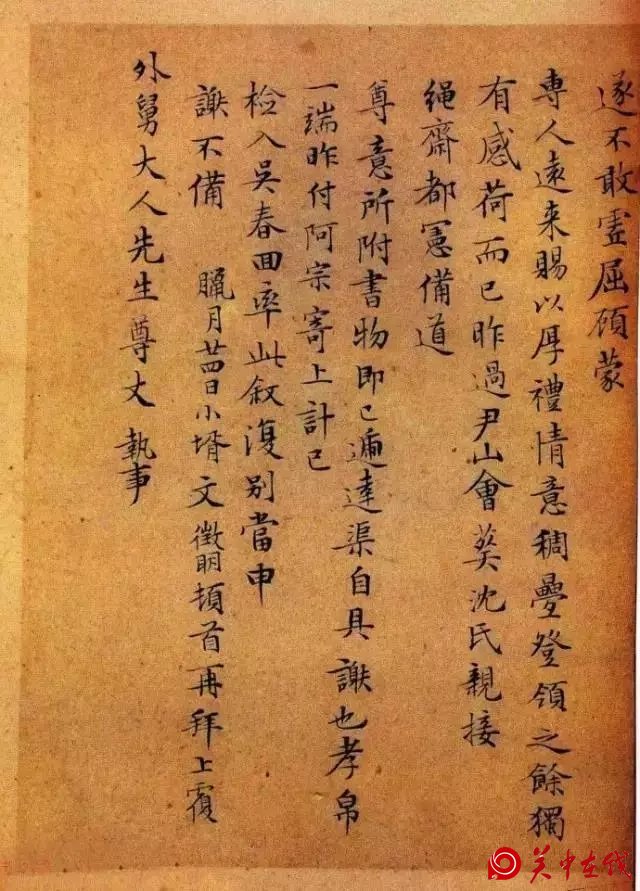 遂不敢虚屈顾蒙
專人遠来賜以厚禮情意稠疊登領之餘獨
有感荷而已昨過尹山會葬沈氏親接
繩齋都憲備道
尊意所附書物即已遞達渠自具謝也孝帛
一端昨付阿宗寄上計已
檢入吳春回率此敘復别當申
謝不備 臘月廿四日小壻文徵明頓首再拜上覆
外舅大人先生尊丈 執事
关中在线